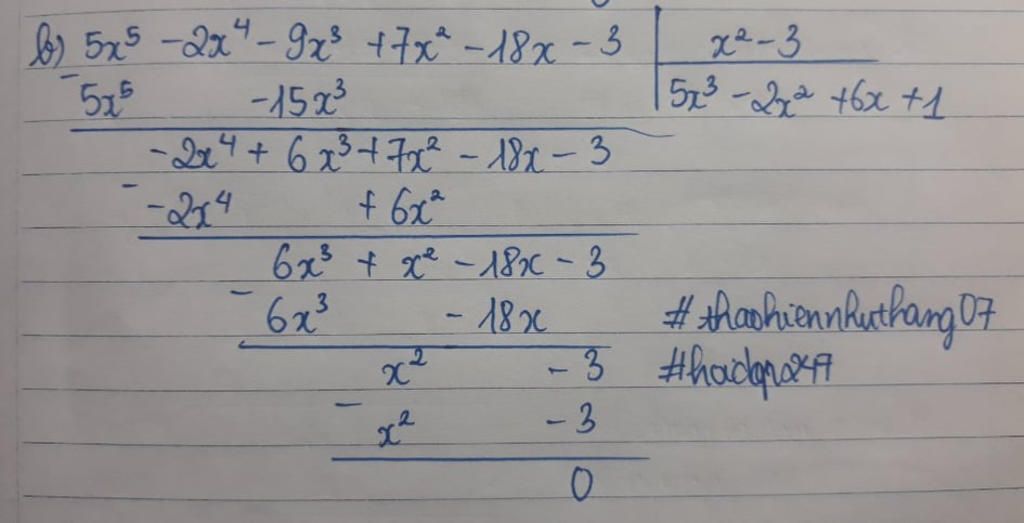 b) 5x⁵ - 2x⁴ - 9x³ + 7x² - 18x - 3 | x² - 3
- 5x⁵ - 15x³ | 5x³ - 2x² + 6x + 1
- 2x⁴ + 6x³ + 7x² - 18x - 3
- - 2x⁴ + 6x²
6x³ + x² - 18x - 3
- 6x³ - 18x
#thaohiennhuthang07
x² - 3
- x² - 3
0